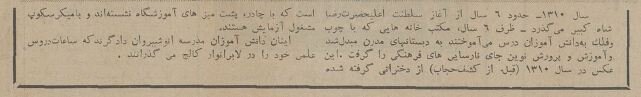 سال ۱۳۱۰ـ حدود ۶ سال از آغاز سلطنت اعلیحضرت رضا
شاه کبیر می‌گذرد ـ ظرف ۶ سال، مکتب خانه هایی که با چوب
وفلک به‌دانش آموزان درس می‌آموختند به دبستانهای مدرن مبدل‌شد
وآموزش و پرورش نوین جای نارسایی های فرهنگی را گرفت .این
عکس در سال ۱۳۱۰ (قبل از کشف‌حجاب) از دخترانی گرفته شده
است که با چادر، پشت میز های آموزشگاه نشسته‌اند و بامیکرسکوپ
مشغول آزمایش هستند.
اینان دانش آموزان مدرسه انوشیروان دادگرندکه ساعات‌دروس
علمی خود را در لابراتوار کالج می گذرانند .